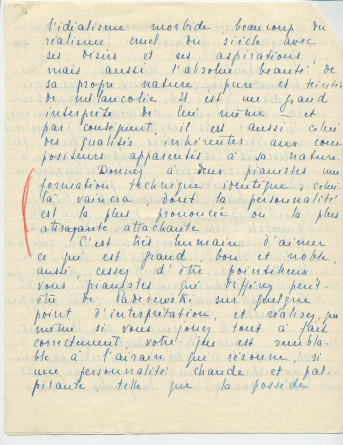 l'idéalisme morbide beaucoup du
réalisme cruel du siècle avec
ses désirs et ses aspirations
mais aussi l'absolue beauté de
sa propre nature pure et teintée
de mélancolie. Il est un grand
interprète de lui-même et
par conséquent, il est aussi celui
des qualités inhérentes aux com-
positeurs apparentés à sa nature.
Donnez à deux pianistes une
formation technique identique, celui
là vaincra, dont la personnalité
est la plus prononcée ou la plus
attrayante attachante
C'est très humain d'aimer
ce qui est grand, bon et noble,
aussi, cessez d'être pointilleux
vous pianistes qui différez peut-
être de Paderewski sur quelque
point d'interprétation, et réalisez, que
même si vous jouez tout à fait
correctement, votre jeu est sembla-
ble à l'airain qui résonne, si
une personnalité chaude et pal-
pitante telle que la possède